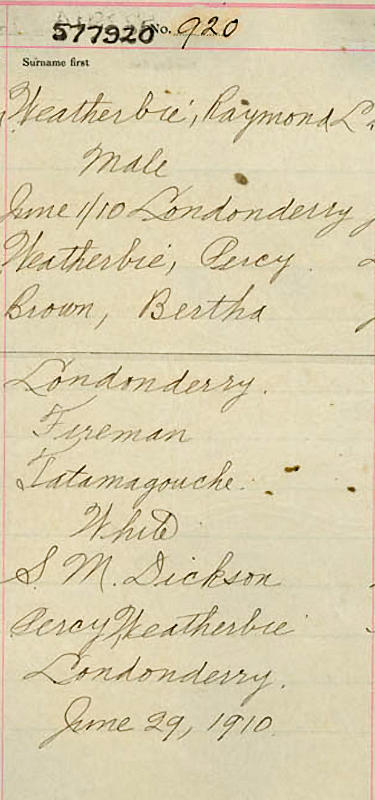 577920 No. 920
Surname first
Weatherbie, Raymond L.
Male
June 1/10 Londonderry
Weatherbie, Percy.
Brown, Bertha
Londonderry.
Fireman
Tatamagouche.
White
S. M. Dickson
Percy Weatherbie
Londonderry.
June 29, 1910.